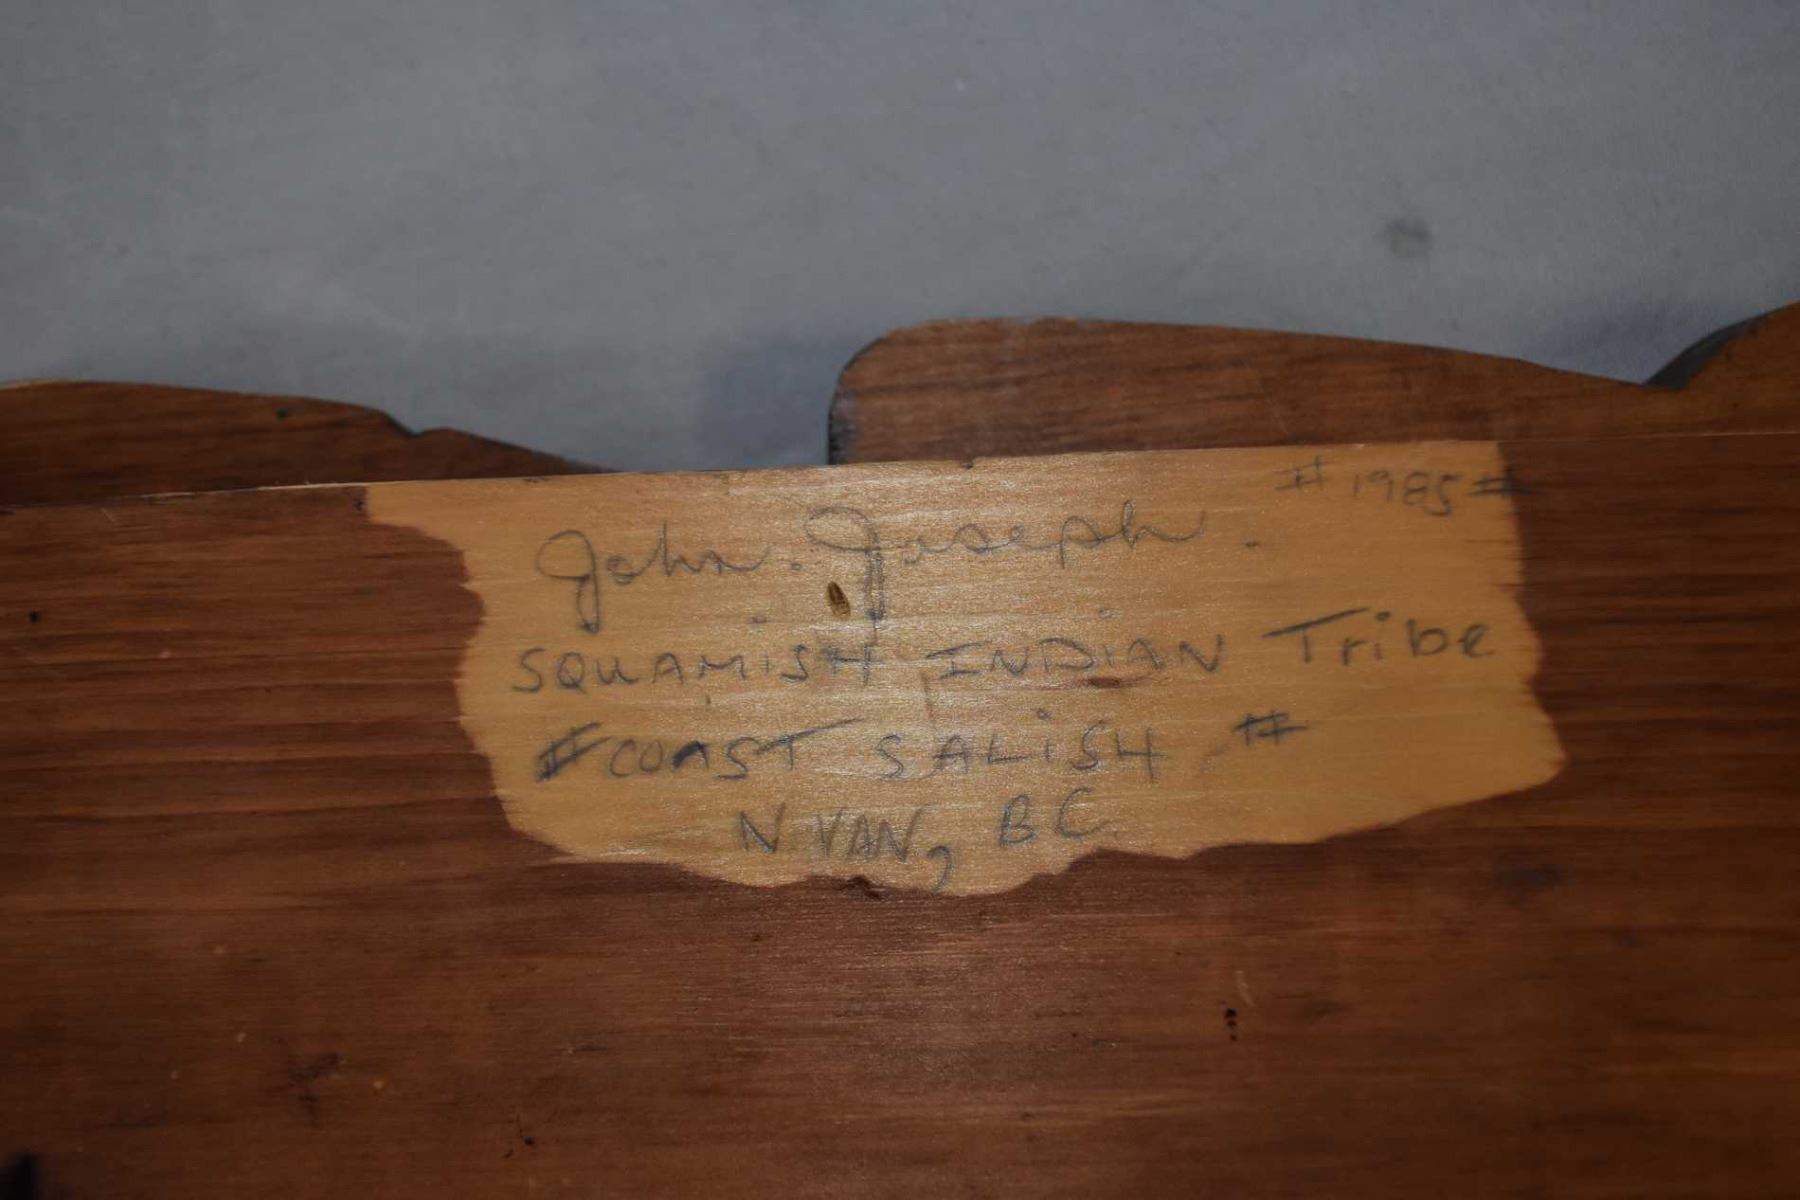 #1985#
John. Joseph.
SQUAMiSH INDiAN Tribe
#COAST SALiSH #
N VAN, BC.